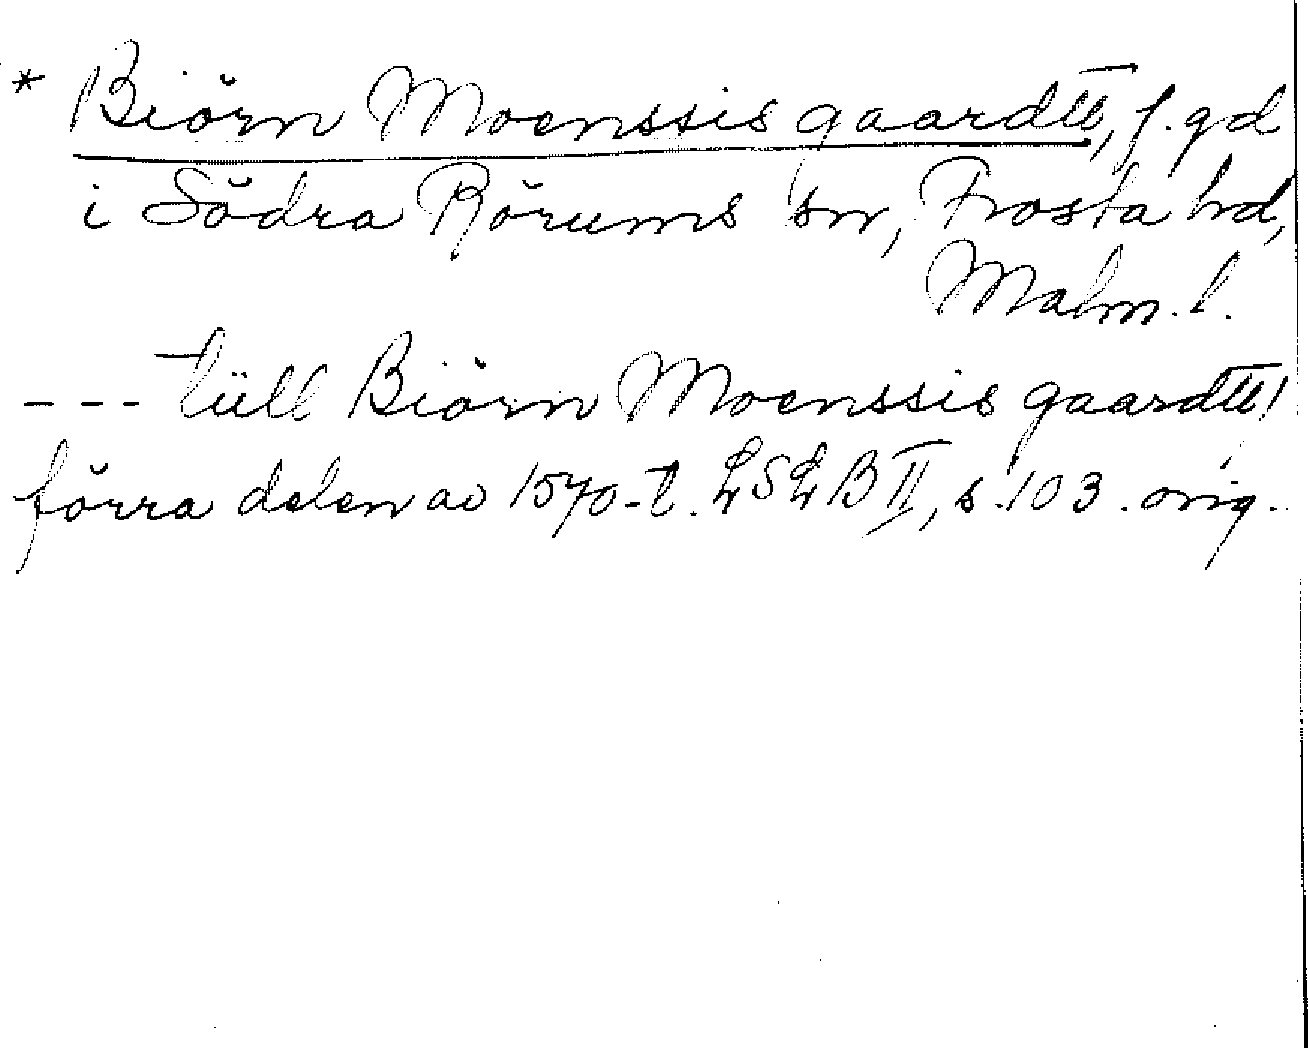 * Biörn Moenssis gaardtt, f. gd
i Södra Rörums sn, Frosta hd,
Malm. l.
--- tüll Biörn Moenssis gaardtt!
förra delen av 1570-t. LSLB II, s. 103. orig.